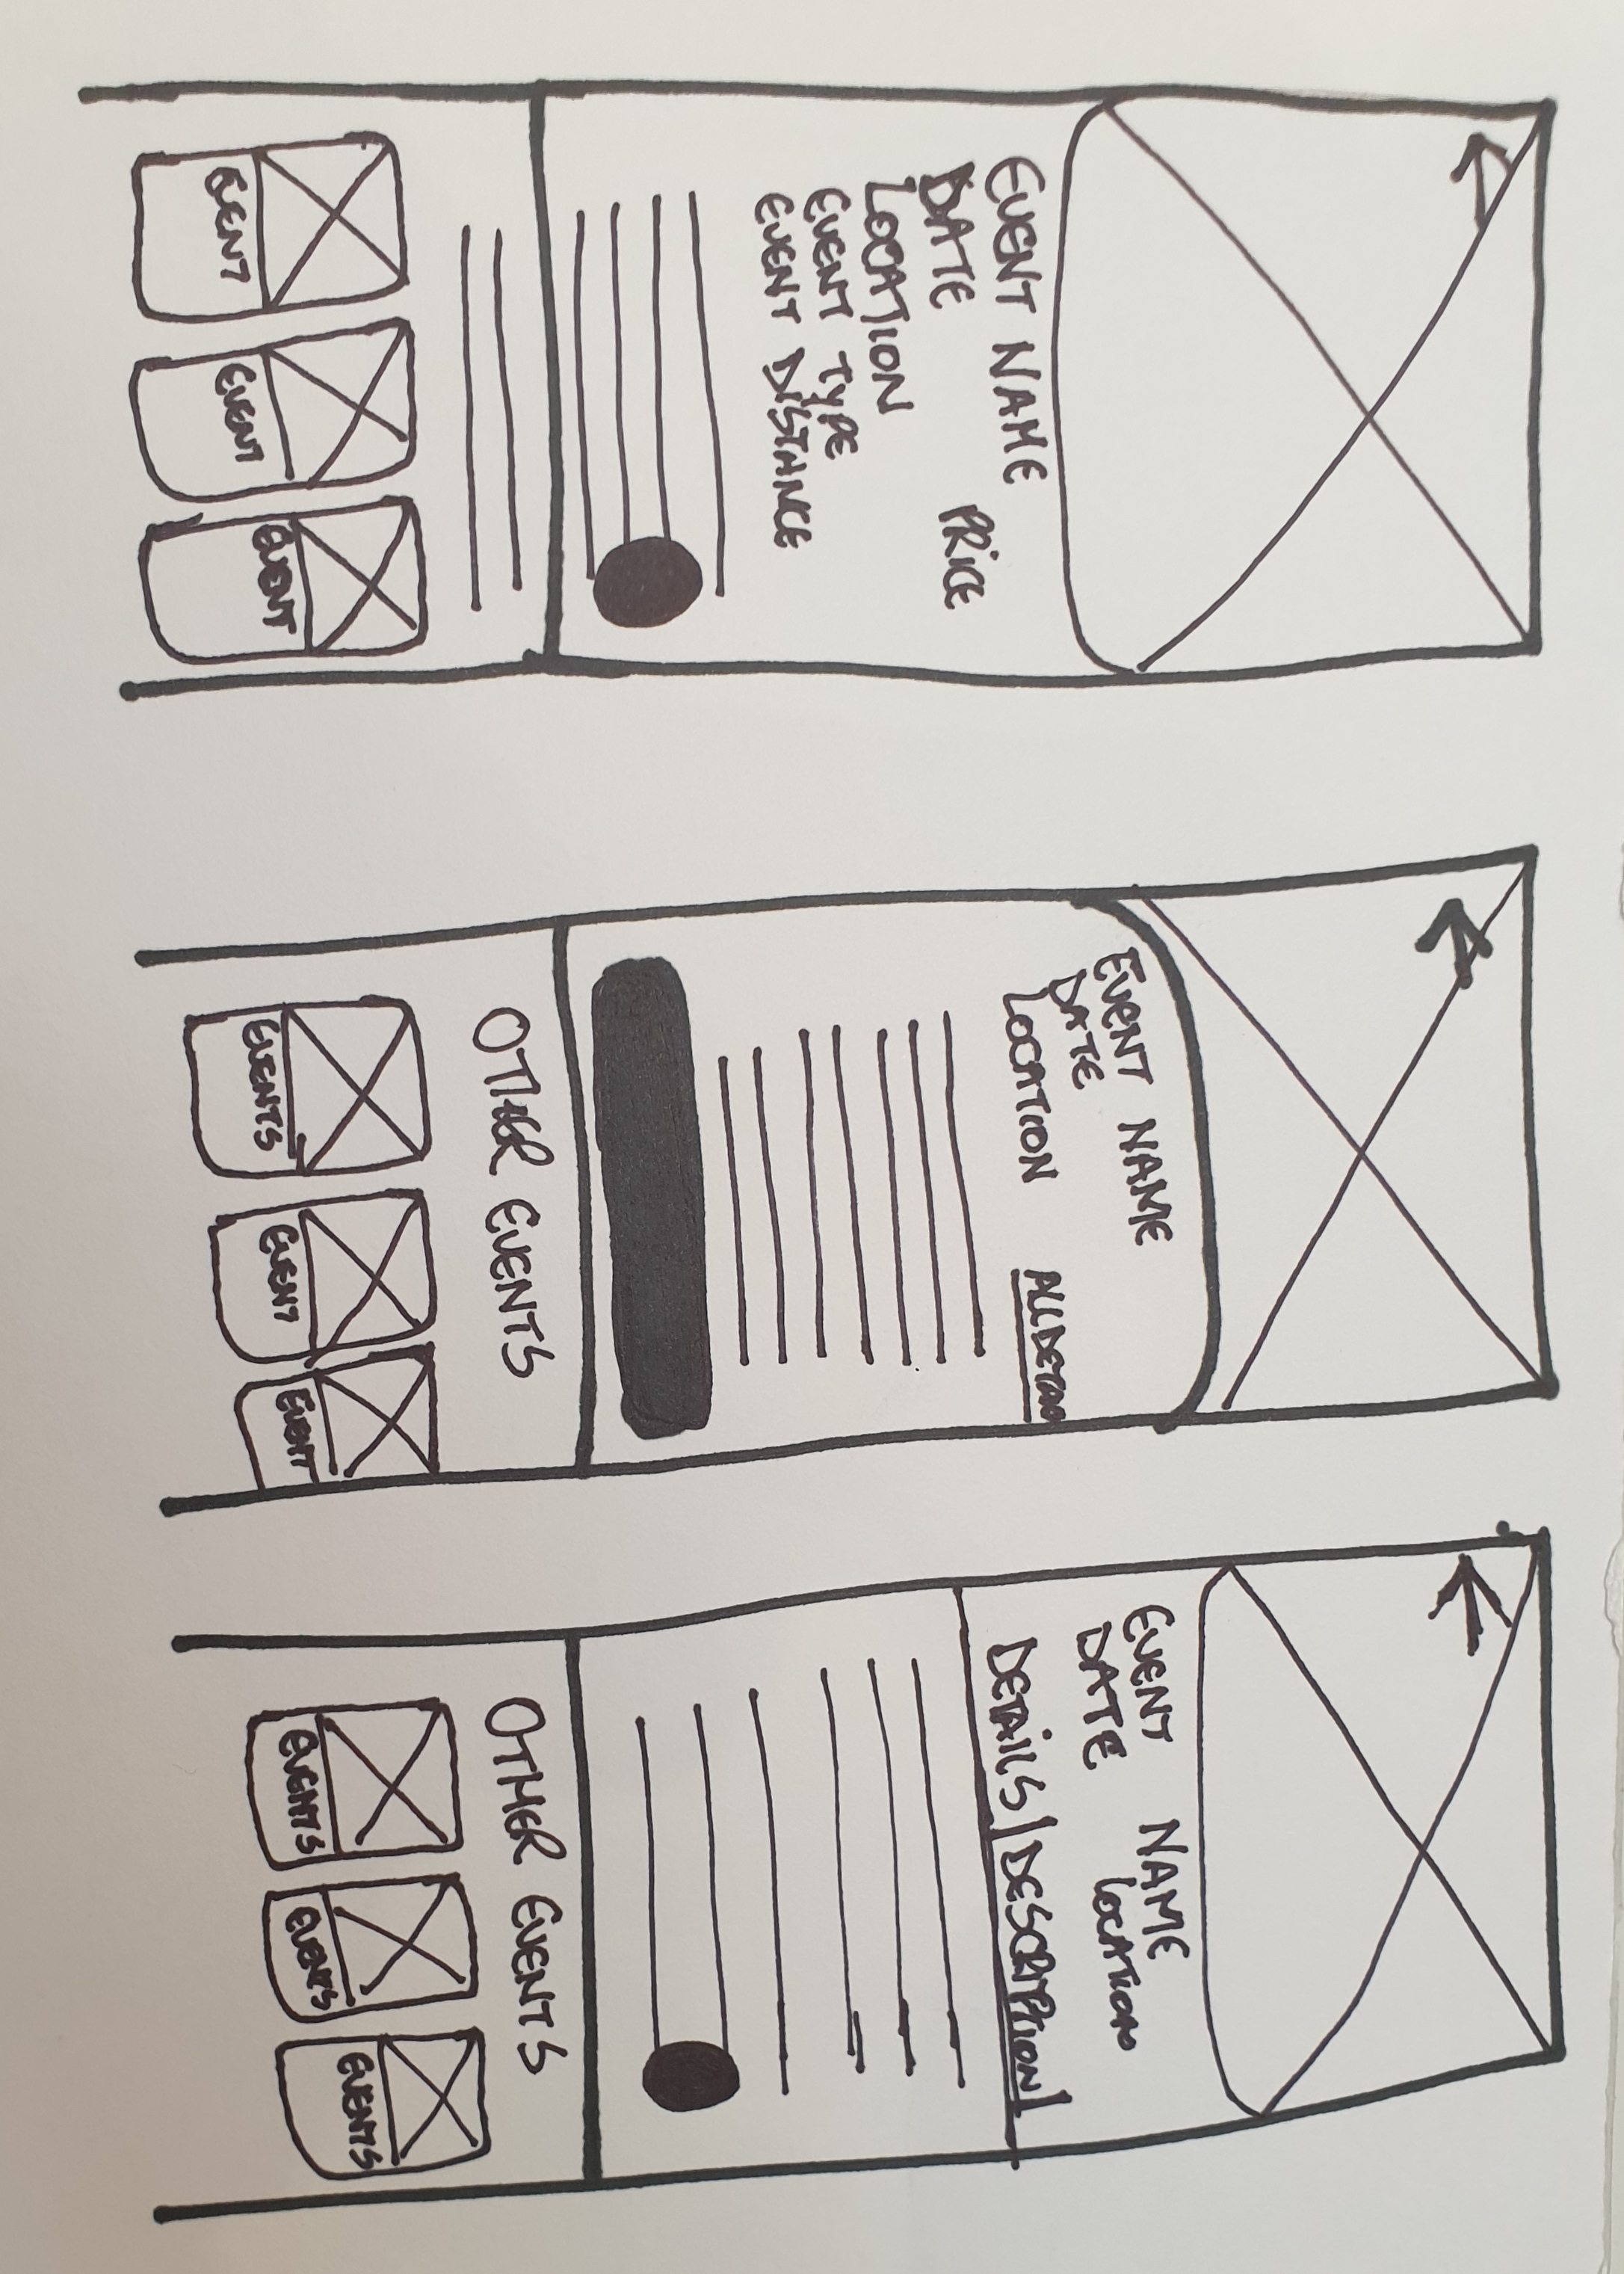 EVENT NAME
DATE PRICE
LOCATION
EVENT TYPE
EVENT DISTANCE
EVENT EVENT EVENT
EVENT NAME
DATE
LOCATION ALL DETAILS
OTHER EVENTS
EVENTS EVENT EVENT
EVENT NAME
DATE LOCATION
DETAILS | DESCRIPTION |
OTHER EVENTS
EVENTS EVENTS EVENTS